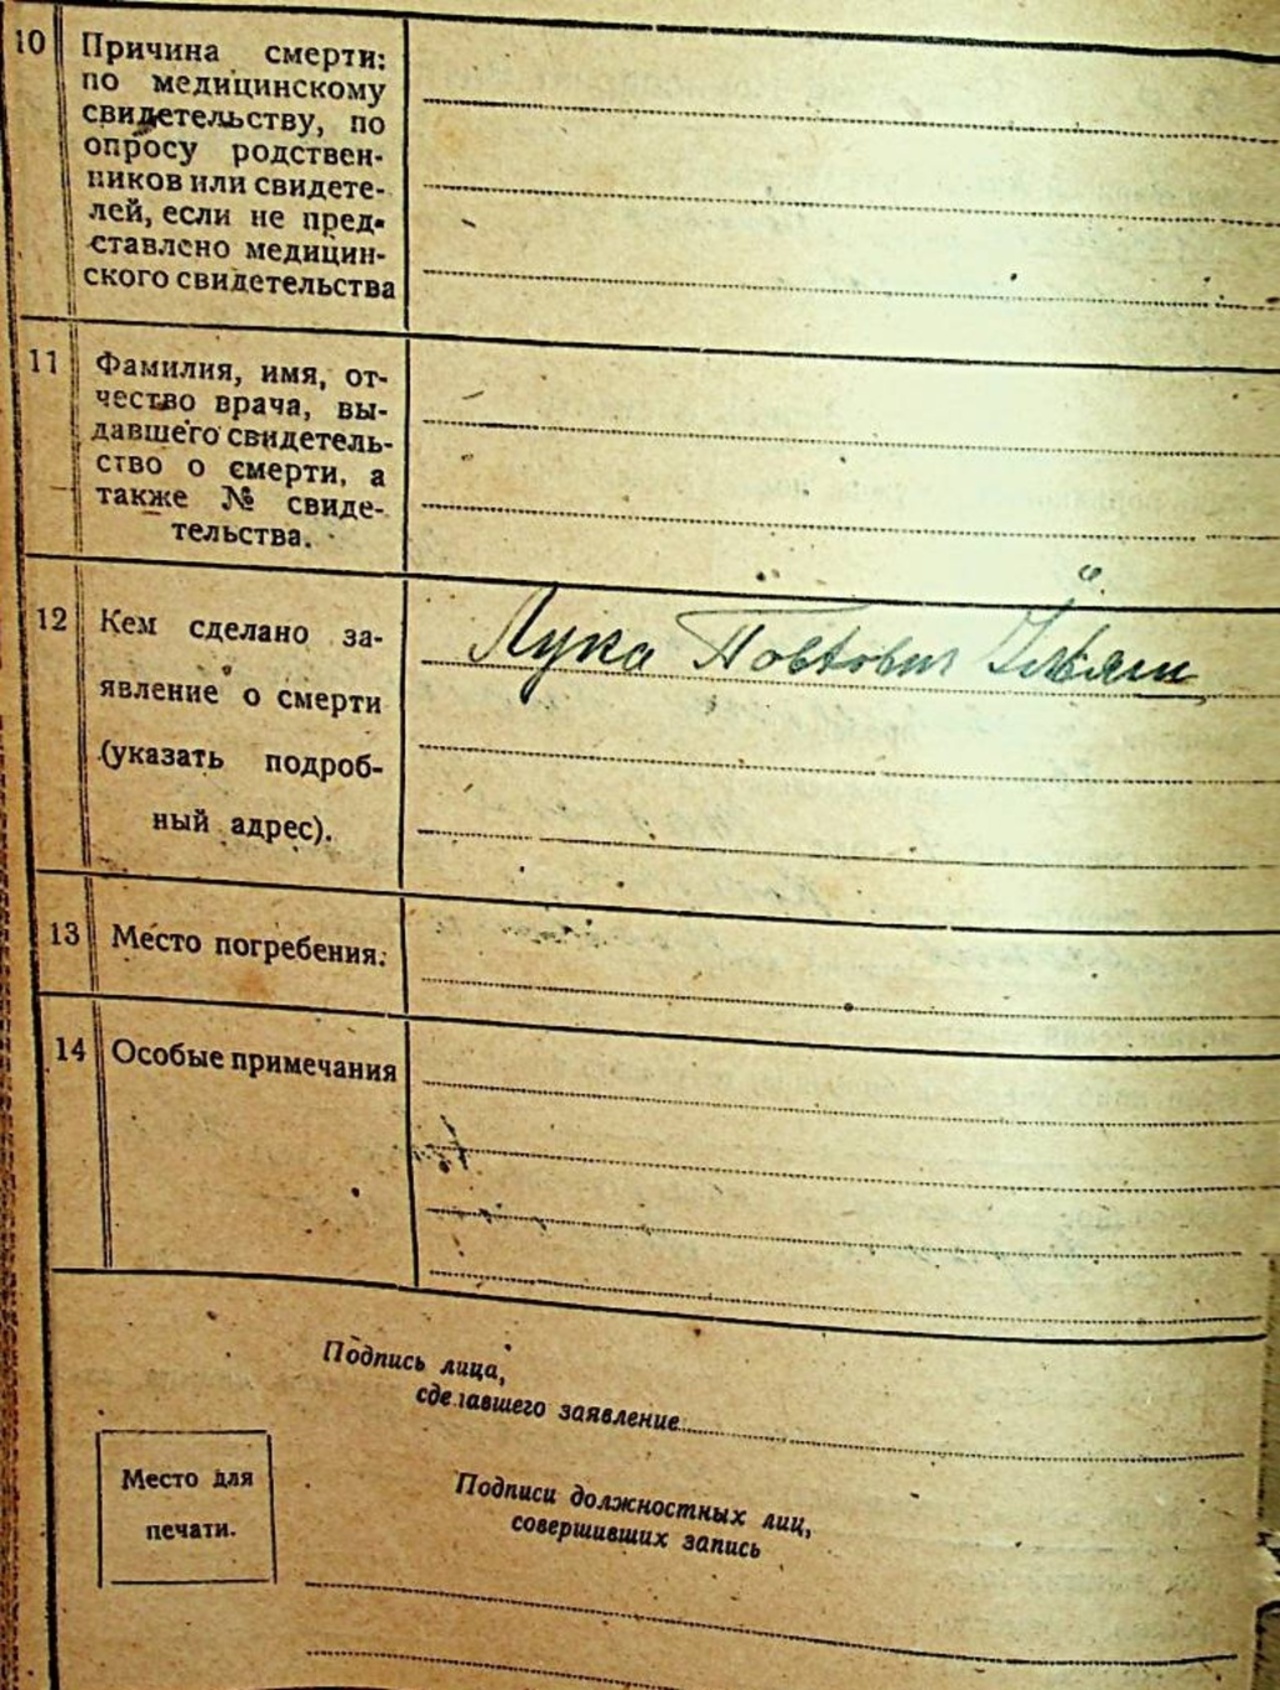 10 Причина смерти:
по медицинскому
свидетельству, по
опросу родствен-
ников или свидете-
лей, если не пред-
ставлено медицин-
ского свидетельства
11 Фамилия, имя, от-
чество врача, вы-
давшего свидетель-
ство о смерти, а
также № свиде-
тельства.
12 Кем сделано за-
явление о смерти
(указать подроб-
ный адрес).
Лука
13 Место погребения:
14 Особые примечания
Подпись лица,
сделавшего заявление
Место для
печати.
Подписи должностных лиц,
совершивших запись